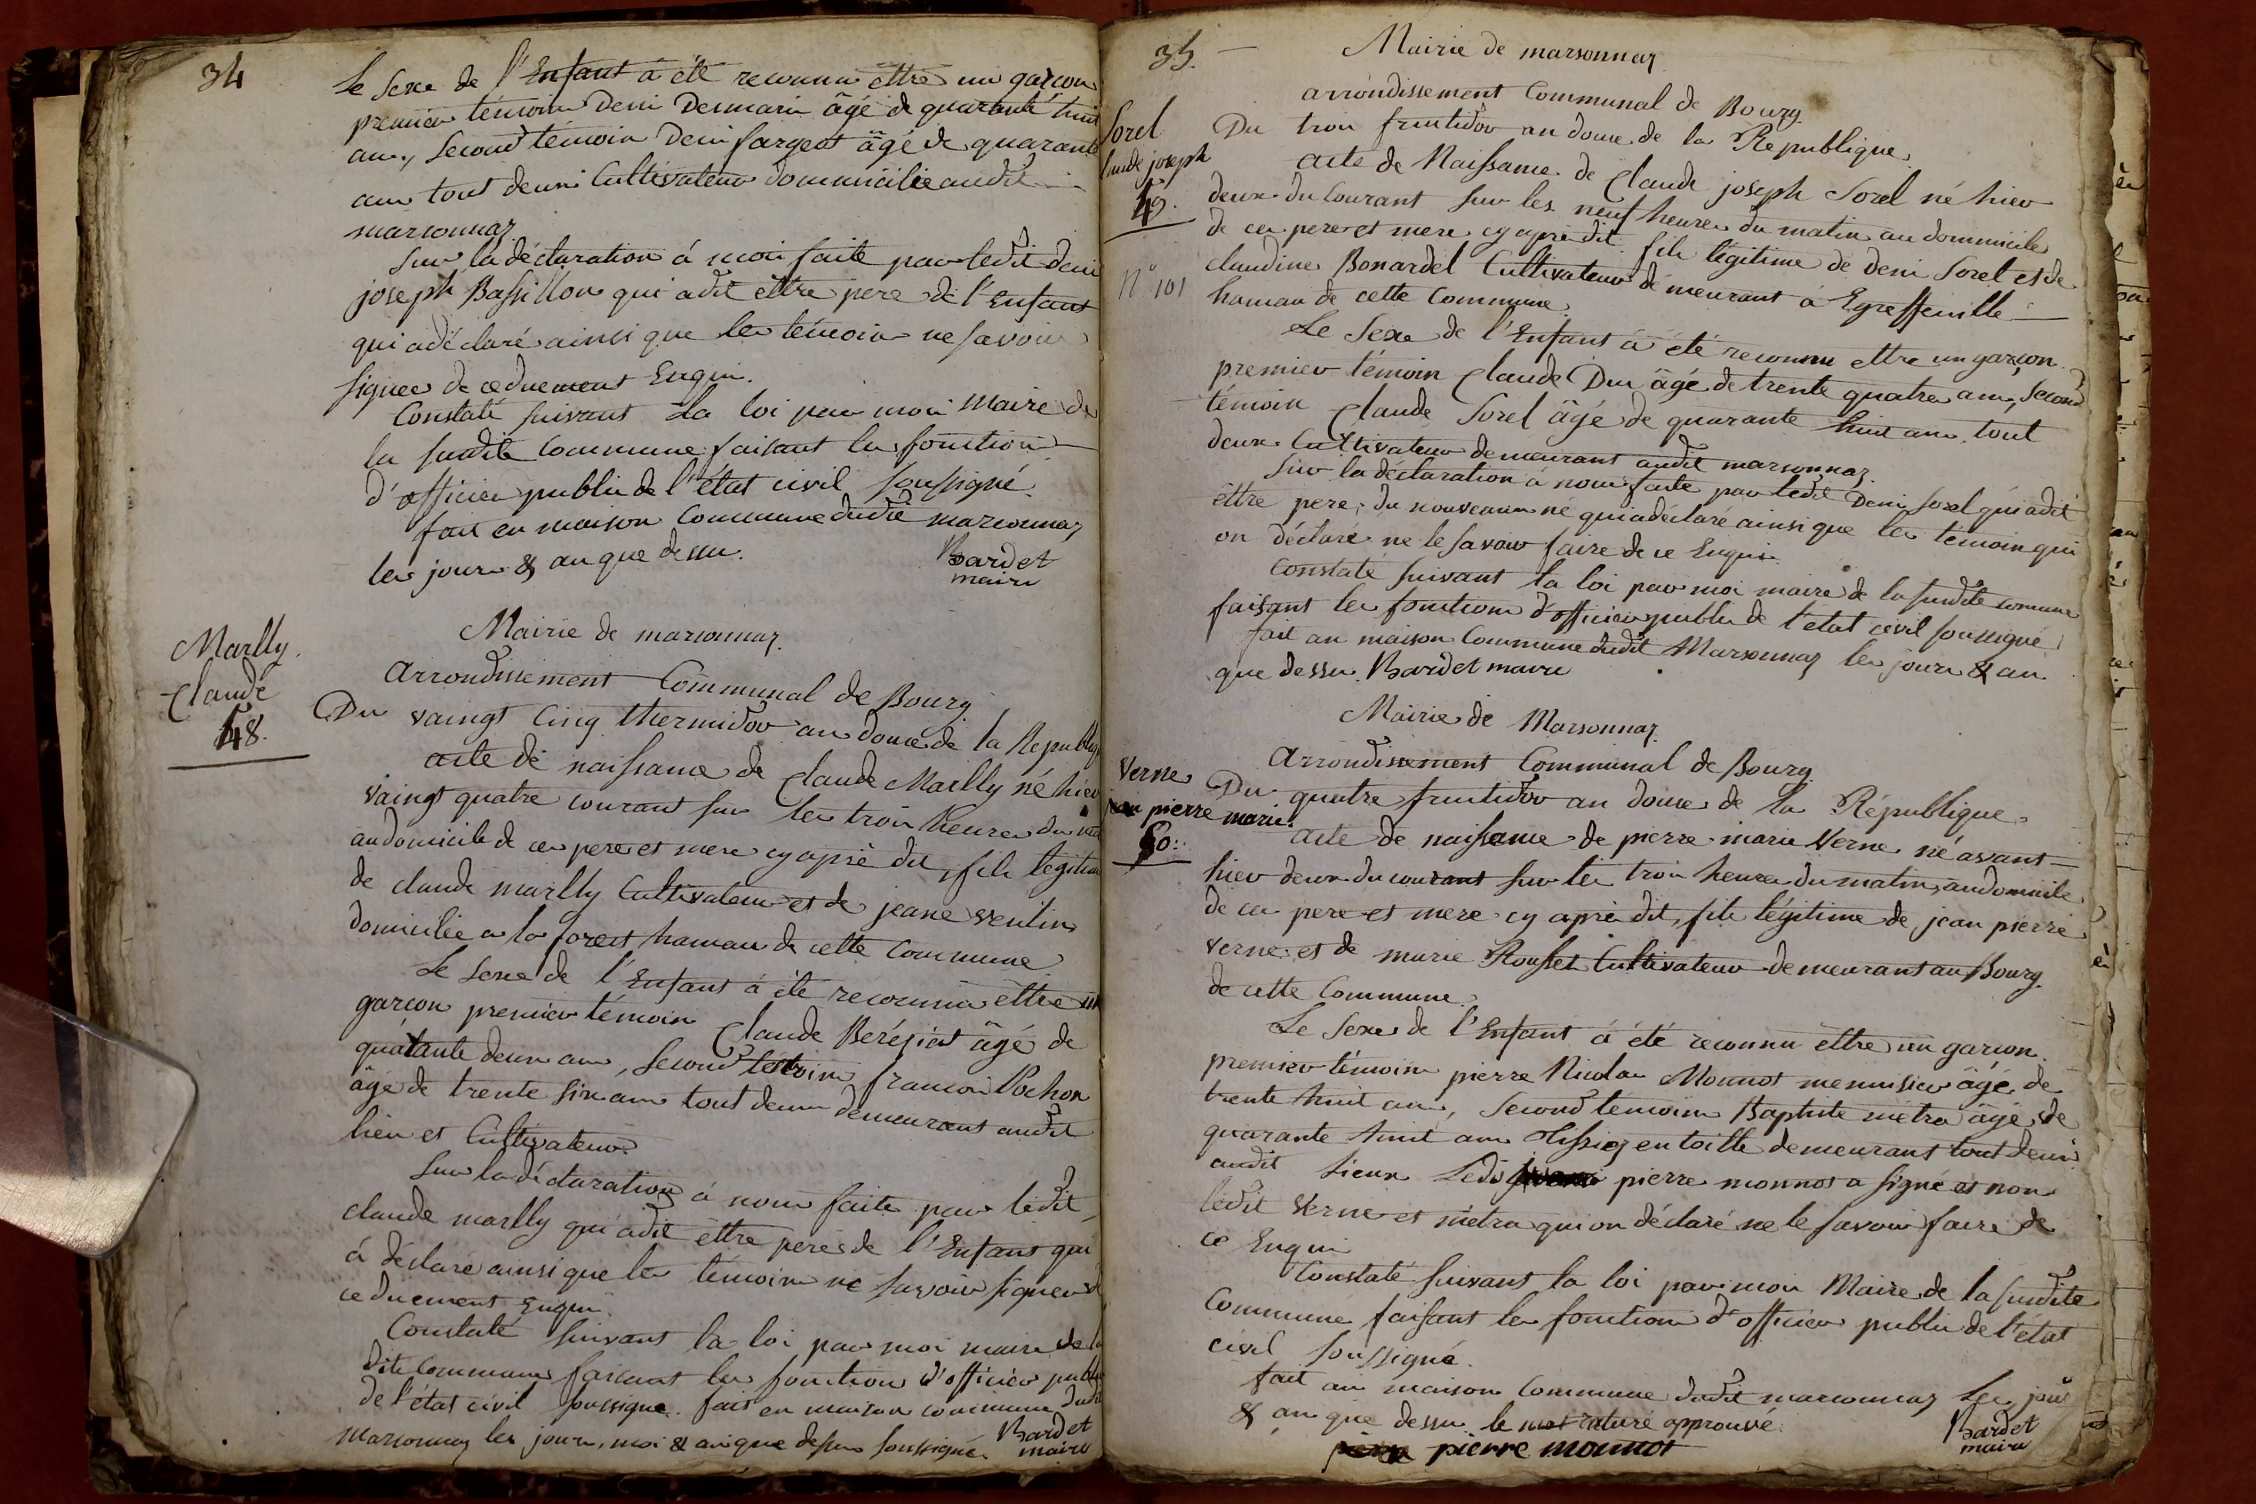 34
Le Sexe de l'Enfant à été reconnu ettre un garçon
premier témoin Deni Desmari âgé de quarante huit
ans, Second témoin Deni fargeot âgé de quarante
ans tout deuxi Cultivateur dommicilié audit
marsonnaz
Sur la déclaration á moi faite par ledit deni
joseph Bassillon qui adit ettre pere de l'Enfant
qui adéclaré ainsi que les témoin ne savoir
signer de ceduement Enquis.
Constaté suivant La loi par moi Maire de
la sudite Commune faisant les fonction
d'officier public de l'état civil soussigné.
fait en maison Commune dudit marsonnaz
les jour & an que dessu.
Bardet
maire
Marlly
Claude
48.
Mairie de marsonnaz.
Arrondissement Communal de Bourg
Du vaingt Cinq thermidor an douze de la Republiq
acte de naissance de Claude Marlly né hier
vaingt quatre courant sur les trois heures du
au domicile de ces pere et mere cy aprè dit, fils legitim
de claude marlly Cultivateur et de jeane ventin
domicilié a la forest hamau de cette Commune
Le Sexe de l'Enfant á été reconnu ettre un
garcon premier témoin Claude Beréziat âgé de
quarante deux ans, Second témoin francoi Pochon
âgé de trente six ans tout deux demeurant audit
lieu et Cultivateur.
Sur la déclaration á nous faite par ledit
claude marlly qui adit ettre pere de l'Enfant qui
á déclaré ainsi que les témoin ne savoir signer d
ceduement Enquis.
Constaté suivant la loi par moi maire de la
dite Commune faisant les fonction d'officier public
de l'état civil soussigné. fait en maison commune dudit
Marsonnaz les jour, moi & an que dessus soussigné.
Bardet
maire
35.
Mairie de marsonnaz
arrondissement Communal de Bourg
Sorel
laude joseph
49.
N° 101
Du troi fructidor an douze de la Republique
acte de Naissance de Claude joseph Sorel né hier
deux du Courant sur les neuf heures du matin au dommicile
de ces pere et mere cy aprè dit fils légitime de deni Sorel et de
claudine Bonardel Cultivateur demeurant à Egreffeuille
hamau de cette Commune.
Le Sexe de l'Enfant á été reconnu ettre un garçon.
premier témoin Claude Duc âgé de trente quatre ans, Second
témoin Claude Sorel âgé de quarante huit ans tout
deux Cultivateur demeurant audit marsonnaz.
Sur la déclaration á nous faite par ledit Deni Sorel qui adit
ettre pere, du nouveaux né qui adéclaré ainsi que les témoin qui
on déclaré ne le savoir faire de ce Enquis
Constaté suivant la loi par moi maire de la sudite comune
faisant les fonctions d'officier public de l'etat civil soussigné
fait an maison Commune dudit Marsonnaz les jour & an
que dessu Bardet maire
Mairie de Marsonnaz.
Arrondissement Communal de Bourg
Verne
pierre marie.
50:
Du quatre fructidor an douze de la République.
acte de naissance de pierre marie Verne né avant
hier deux du courant sur les troi heures du matin, audomicile
de ces pere et mere cy aprè dit, fils légitime de jean pierre
verne et de marie Rousset Cultivateur demeurant au Bourg
de cette Commune.
Le Sexe de l'Enfant á été reconnu ettre un garcon.
premier témoin pierre Nicolas Monnot menuisier âgé de
trente huit ans, Second témoin Baptiste métra âgé de
quarante huit ans tissier en toille demeurant tout deux
audit lieux Ledi pierre monnot a signé et non
ledit Verne et métra qui on déclaré ne le savoir faire de
ce Enquis
Constaté suivant la loi par moi Maire de la sudite
Commune faisant les fonction d'officier public de l'état
civil soussigné.
fait an maison Commune dudit marsonnaz les jour
& an que dessu le mot raturé approuvé.
Bardet
maire
pierre monnot